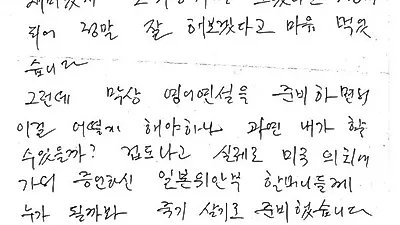 되어 정말 잘 해보겠다고 마음 먹었
습니다
그런데 막상 영어연설을 준비하면서
이걸 어떻게 해야하나 과연 내가 할
수있을까? 겁도나고 실제로 미국 의회에
가서 증언하신 일본위안부 할머니들께
누가 될까봐 죽기 살기로 준비했습니다